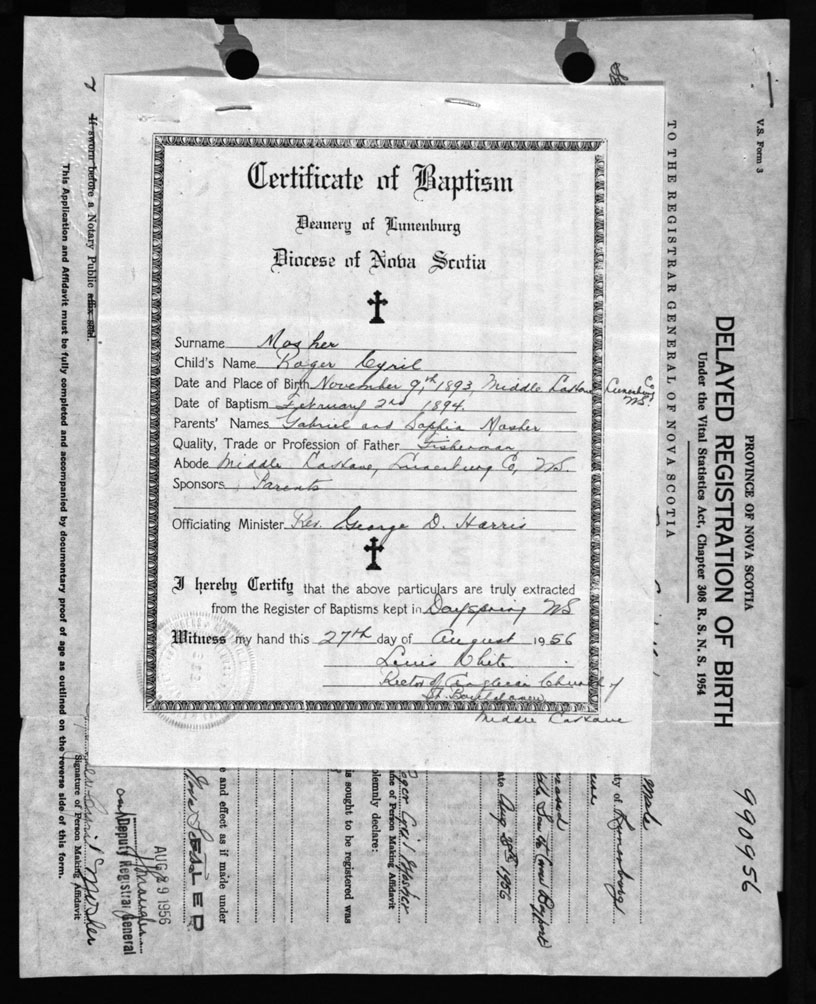 Certificate of Baptism
Deanery of Lunenburg
Diocese of Nova Scotia
Surname Mosher
Child's Name Roger Cyril
Date and Place of Birth November 9th 1893 Middle LaHave Lunenburg Co, NS.
Date of Baptism February 2nd 1894.
Parents' Names Gabriel and Sophia Mosher
Quality, Trade or Profession of Father Fisherman
Abode Middle LaHave, Lunenburg Co, NS.
Sponsors Parents
Officiating Minister Rev. George D. Harris
I hereby Certify that the above particulars are truly extracted
from the Register of Baptisms kept in Dayspring NS
Witness my hand this 27th day of August 1956
Louis White
Rector of Anglican Church of
St. Bartholomew
Middle LaHave
V.S. Form 3
PROVINCE OF NOVA SCOTIA
DELAYED REGISTRATION OF BIRTH
Under the Vital Statistics Act, Chapter 308 R. S. N. S. 1954
990956
TO THE REGISTRAR GENERAL OF NOVA SCOTIA
Male
ty of Lunenburg
ate Aug 28th 1956
Roger Cyril Mosher
me of Person Making Affidavit
olemnly declare:
is sought to be registered was
e and effect as if made under
Nova Scotia
SEALED
AUG 29 1956
Deputy Registrar General
Cyril Mosher
Signature of Person Making Affidavit
If sworn before a Notary Public affix seal.
This Application and Affidavit must be fully completed and accompanied by documentary proof of age as outlined on the reverse side of this form.